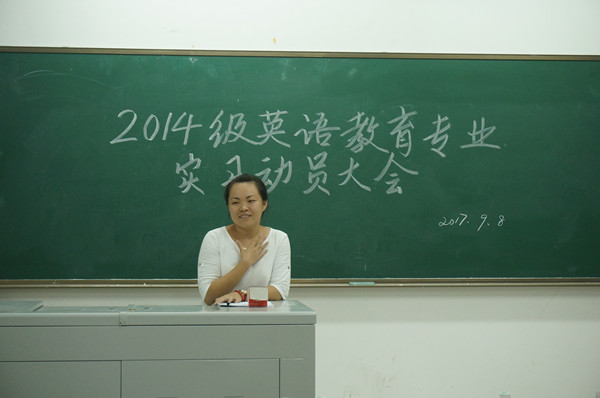 2014级英语教育专业
实习动员大会
2017.9.8